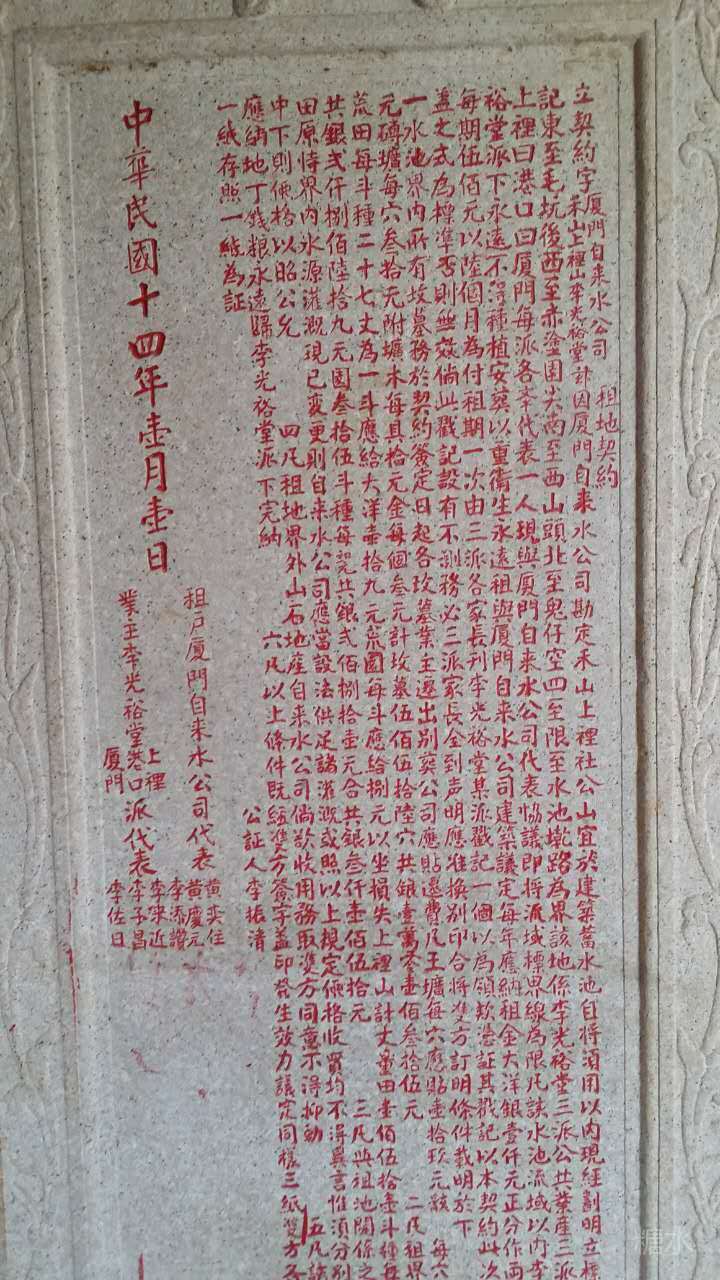 租地契約
立契約字厦門自来水公司
禾山上裡山李光裕堂玆因厦門自来水公司勘定禾山上裡社公山宜於建築蓄水池自将須用以内現經劃明立標
記東至毛坑後西至赤塗園尖崗至西山頭北至鬼仔空四至限至水池墘路為界該地係李光裕堂三派公共業産三派
上裡曰港口曰厦門每派各奉代表一人現與厦門自来水公司代表恊議即将流域標界線為限凡該水池流域以内李
裕堂派下永遠不得種植安葬以重衛生永遠租與厦門自来水公司建築議定每年應納租金大洋銀壹仟元正分作両
每期伍佰元以陸個月為付租期一次由三派各家長刋李光裕堂某派戳記一個以為領欵憑証其戳記以本契約此次
盖之式為標準否則無效倘此戳記設有不測務必三派家長仝到声明應准換别印合将雙方訂明條件載明於下
一水池界内所有坟墓務於契約簽定日起各坟墓業主遷出别葬公司應貼遷費凡王壙每穴應貼壹拾玖元該 每穴
元磚壙每穴叁拾元附壙木每具拾元金每個叁元計坟墓伍佰伍拾陸穴共銀壹萬零壹佰叁拾伍元 二凡租界
荒田每斗種二十七丈為一斗應给大洋壹拾九元荒園每斗應给捌元以坐損失上裡山計丈量田壹佰伍拾壹斗種每
共銀弍仟捌佰陸拾九元園叁拾伍斗種每 共銀弍佰捌拾壹元合共銀叁仟壹佰伍拾元 三凡與租池關係之
田原恃界内水源灌溉現已変更則自来水公司應當設法供足諸灌溉或照以上規定価格收買均不得異言惟須分别
中下則価格以昭公允 四凡租地界外山石地産自来水公司倘欲收用務取雙方同意不得抑勒 五凡該
應納地丁錢粮永遠歸李光裕堂派下完納 六凡以上條件既經雙方簽字盖印發生效力議定同樣三紙雙方各
一紙存照一紙為証
公証人李振清
租戸厦門自来水公司代表 黄奕住 黄慶元
業主李光裕堂 上裡 港口 厦門 派代表 李添讚 李宋近 李子昌 李佐日
中華民國十四年壹月壹日
糖水